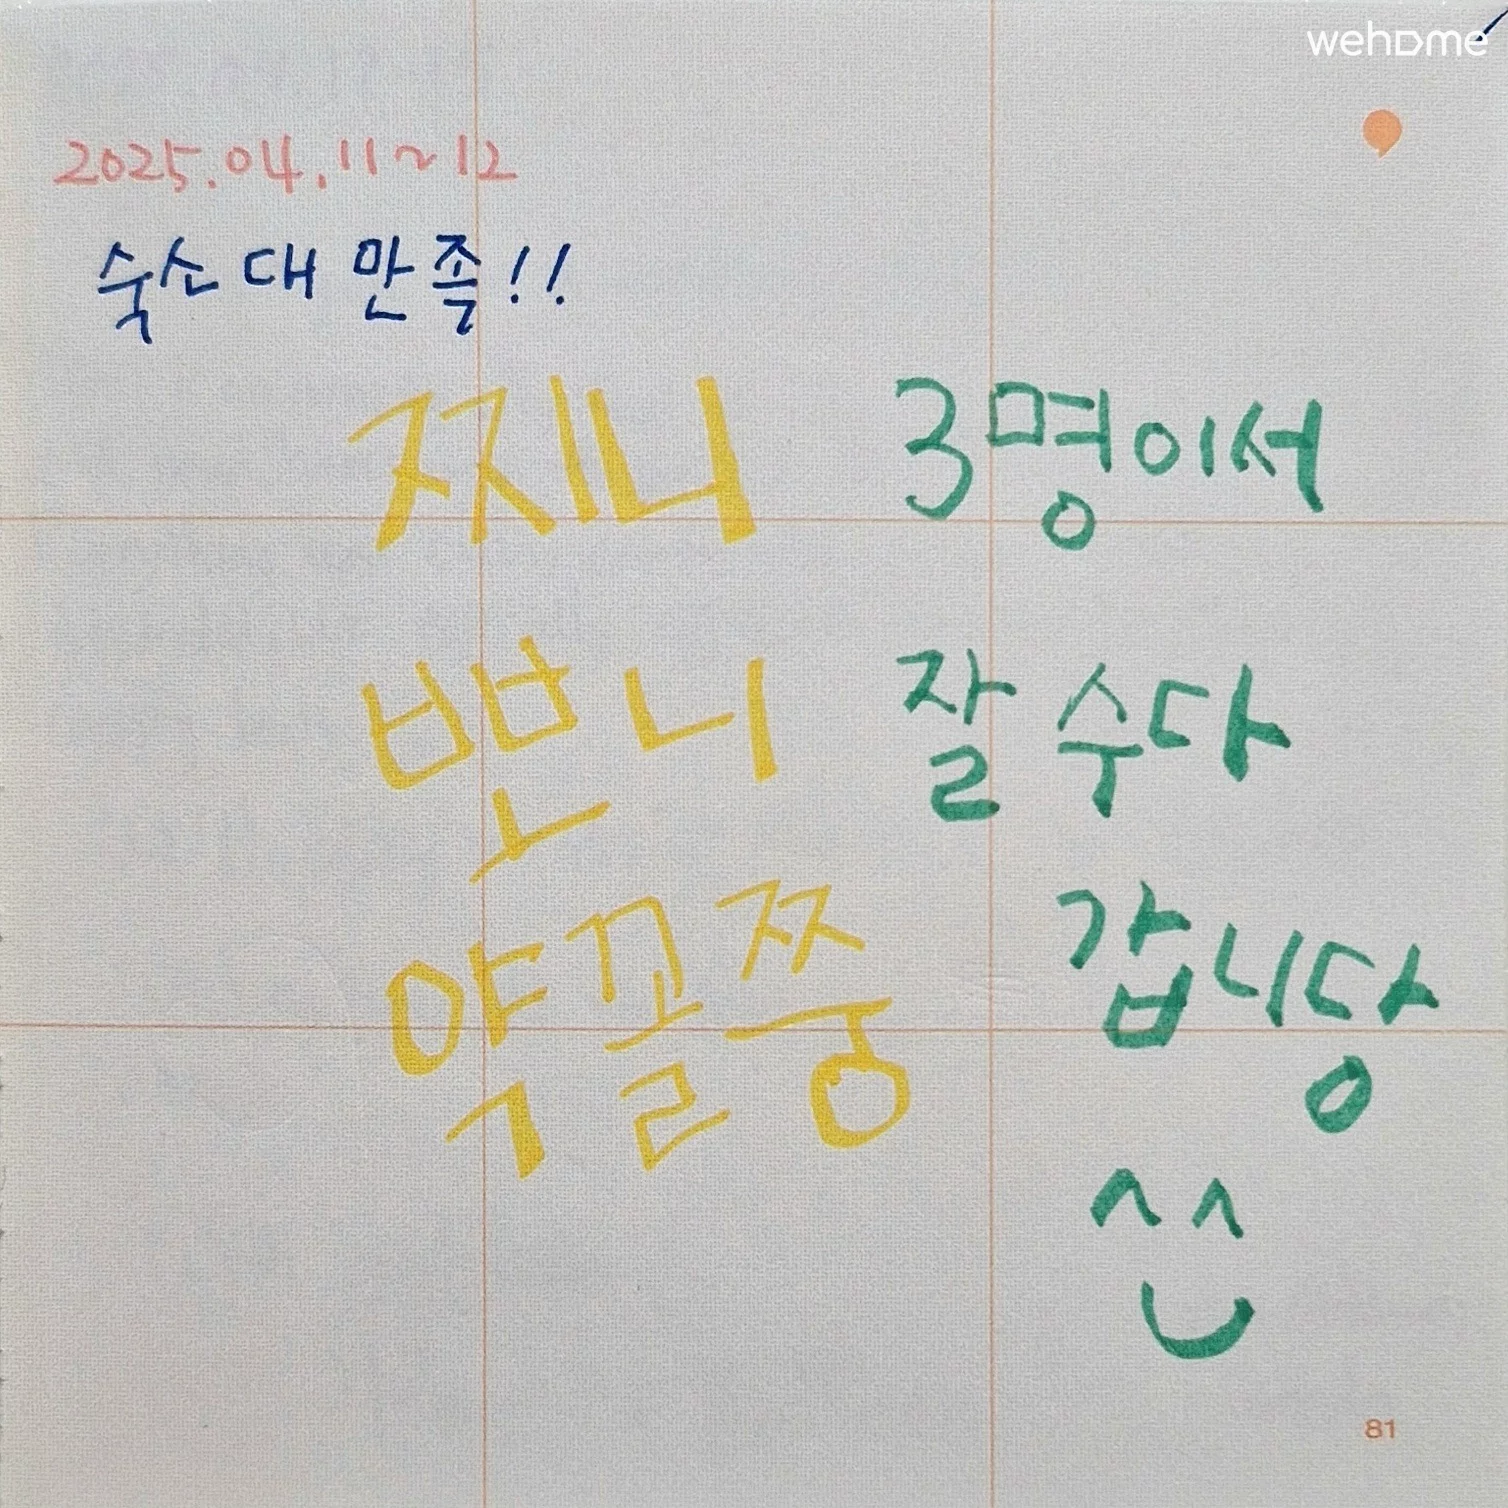 wehome
2025.04.11~12
숙소 대 만족!!
찌니
뽄니
얔꼴쭝
3명이서
잘 수다
갑니당
^^
81